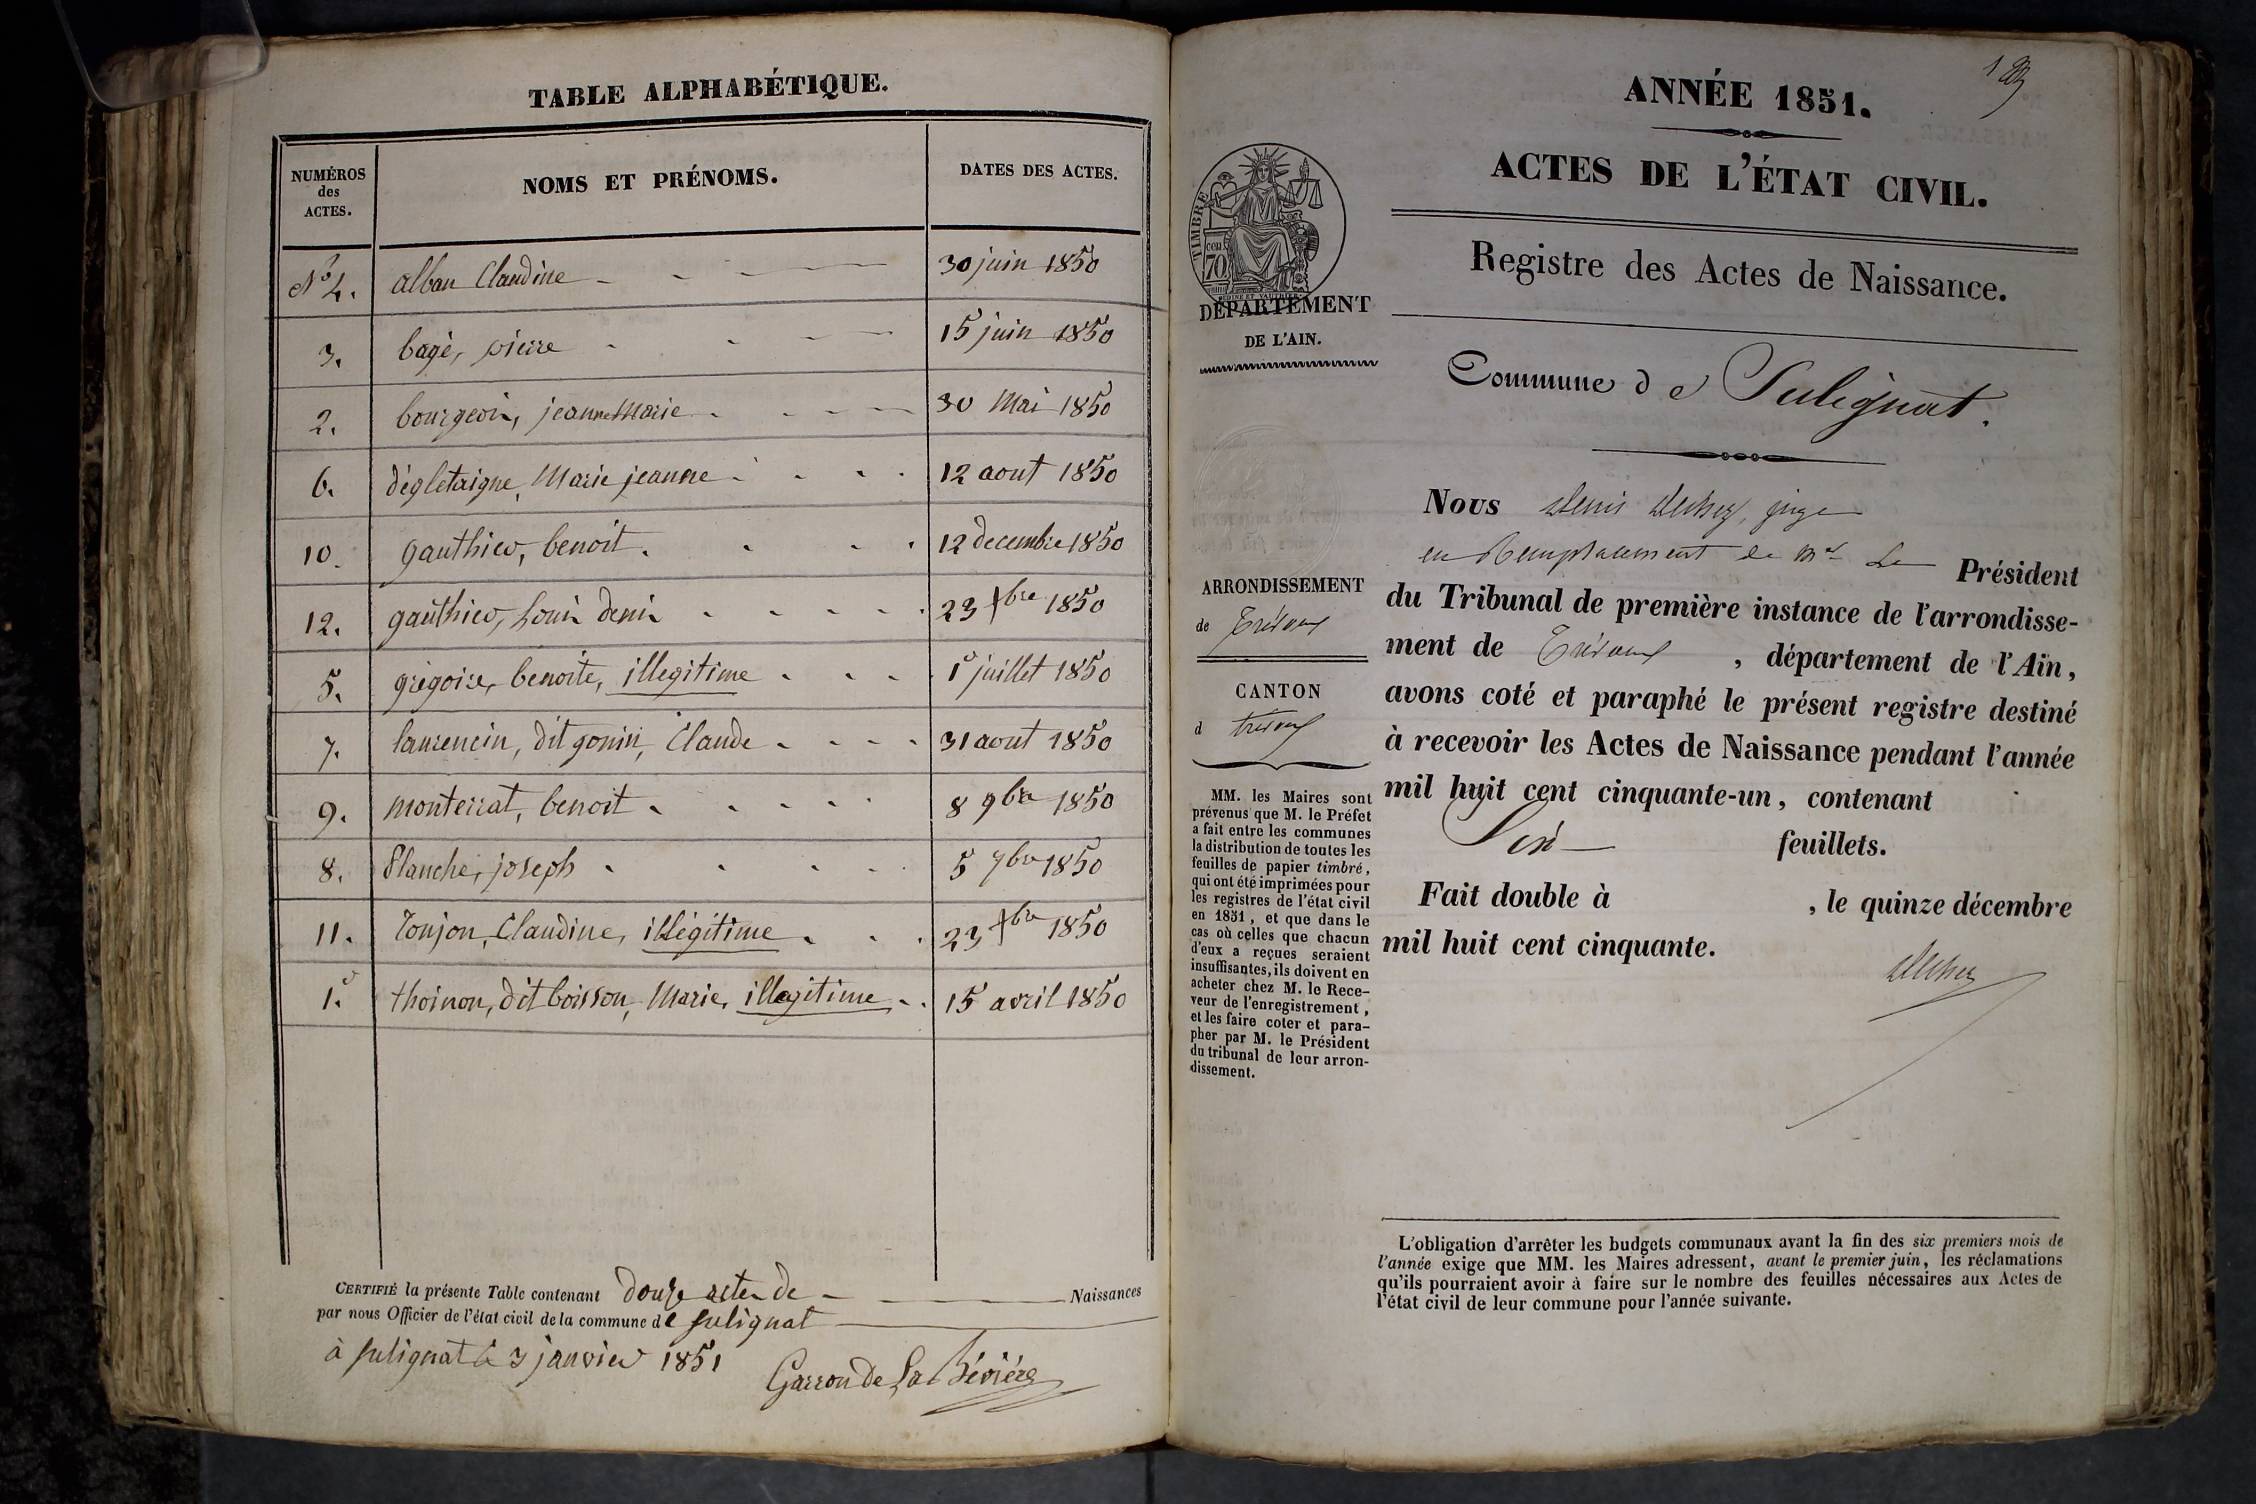 TABLE ALPHABÉTIQUE.
NUMÉROS
des
ACTES.
NOMS ET PRÉNOMS.
DATES DES ACTES.
N° 4. alban Claudine 30 juin 1850
3. bagé, pierre 15 juin 1850
2. bourgeois, jeanne Marie 30 Mai 1850
6. dégletaigne, Marie jeanne 12 aout 1850
10. gauthier, benoit. 12 decembre 1850
12. gauthier, Louis denis 23 xbre 1850
5. grégoire, benoite, illegitime 1° juillet 1850
7. laurencin, dit gonin, Claude 31 aout 1850
9. monterrat, benoit 8 9bre 1850
8. Planche, joseph 5 7bre 1850
11. Tonjon, Claudine, illégitime 23 xbre 1850
1°. thoinon, dit boisson, Marie, illegitime 15 avril 1850
CERTIFIÉ la présente Table contenant douze actes de Naissances
par nous Officier de l'état civil de la commune de Sulignat
à Sulignat le 3 janvier 1851
Garron de La Bévière
ANNÉE 1851.
ACTES DE L'ÉTAT CIVIL.
Registre des Actes de Naissance.
TIMBRE
cen
70
DÉPARTEMENT
DE L'AIN.
Commune de Sulignat.
ARRONDISSEMENT
de Trévoux
CANTON
d trévoux
MM. les Maires sont
prévenus que M. le Préfet
a fait entre les communes
la distribution de toutes les
feuilles de papier timbré,
qui ont été imprimées pour
les registres de l'état civil
en 1851, et que dans le
cas où celles que chacun
d'eux a reçues seraient
insuffisantes, ils doivent en
acheter chez M. le Rece-
veur de l'enregistrement,
et les faire coter et para-
pher par M. le Président
du tribunal de leur arron-
dissement.
Nous Denis juge
en Remplacement de Mr Le Président
du Tribunal de première instance de l'arrondisse-
ment de Trévoux, département de l'Ain,
avons coté et paraphé le présent registre destiné
à recevoir les Actes de Naissance pendant l'année
mil huit cent cinquante-un, contenant
Six feuillets.
Fait double à , le quinze décembre
mil huit cent cinquante.
L'obligation d'arrêter les budgets communaux avant la fin des six premiers mois de
l'année exige que MM. les Maires adressent, avant le premier juin, les réclamations
qu'ils pourraient avoir à faire sur le nombre des feuilles nécessaires aux Actes de
l'état civil de leur commune pour l'année suivante.